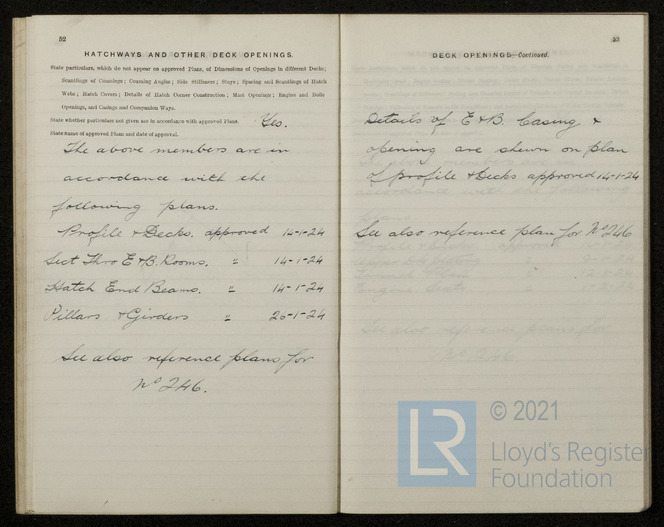 52
HATCHWAYS AND OTHER DECK OPENINGS.
State particulars, which do not appear on approved Plans, of Dimensions of Openings in different Decks;
Scantlings of Coamings; Coaming Angles; Side Stiffeners; Stays; Spacing and Scantlings of Hatch
Webs; Hatch Covers; Details of Hatch Corner Construction; Mast Openings; Engine and Boiler
Openings, and Casings and Companion Ways.
State whether particulars not given are in accordance with approved Plans. Yes.
State name of approved Plans and date of approval.
The above members are in
accordance with the
following plans.
Profile & Decks. approved 14-1-24
Sect Thro E & B. Rooms. " 14-1-24
Hatch End Beams. " 14-1-24
Pillars & Girders " 20-1-24
See also reference plans for
No 246.
53
DECK OPENINGS—Continued.
Details of E & B. Casing &
opening are shewn on plan
of profile & Decks approved 14-1-24
See also reference plan for No 246
LR
© 2021
Lloyd's Register
Foundation